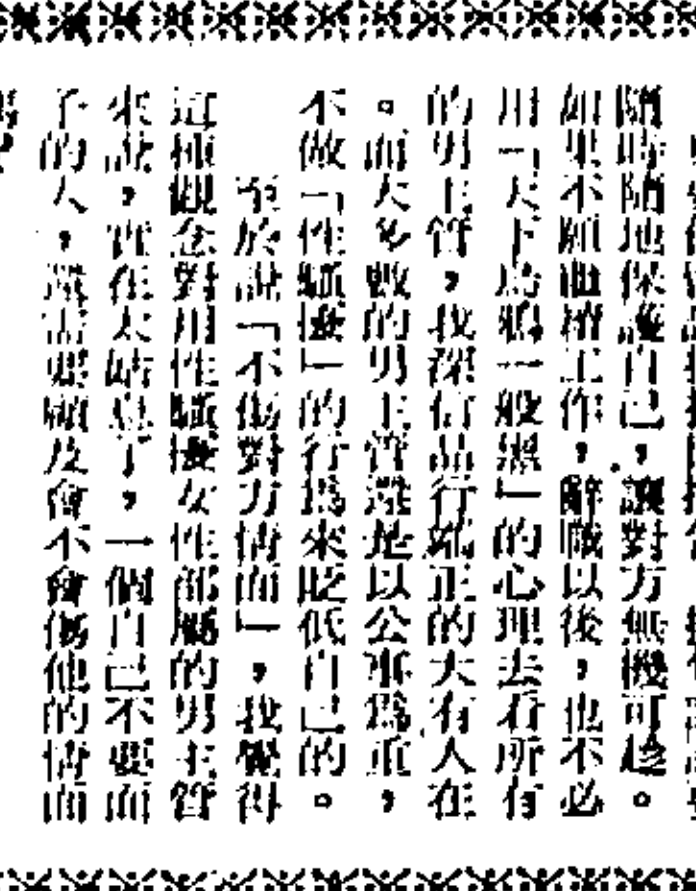 隨時隨地保護自己，讓對方無機可趁。
如果不願曲膝工作，辭職以後，也不必
用「天下烏鴉一般黑」的心理去看所有
的男主管，我深信品行端正的大有人在
。而大多數的男主管還是以公事為重，
不做「性騷擾」的行為來貶低自己的。
至於說「不傷對方情面」，我覺得
這種觀念對用性騷擾女性部屬的男主管
來說，實在太姑息了，一個自己不要面
子的人，還需要顧及會不會傷他的情面